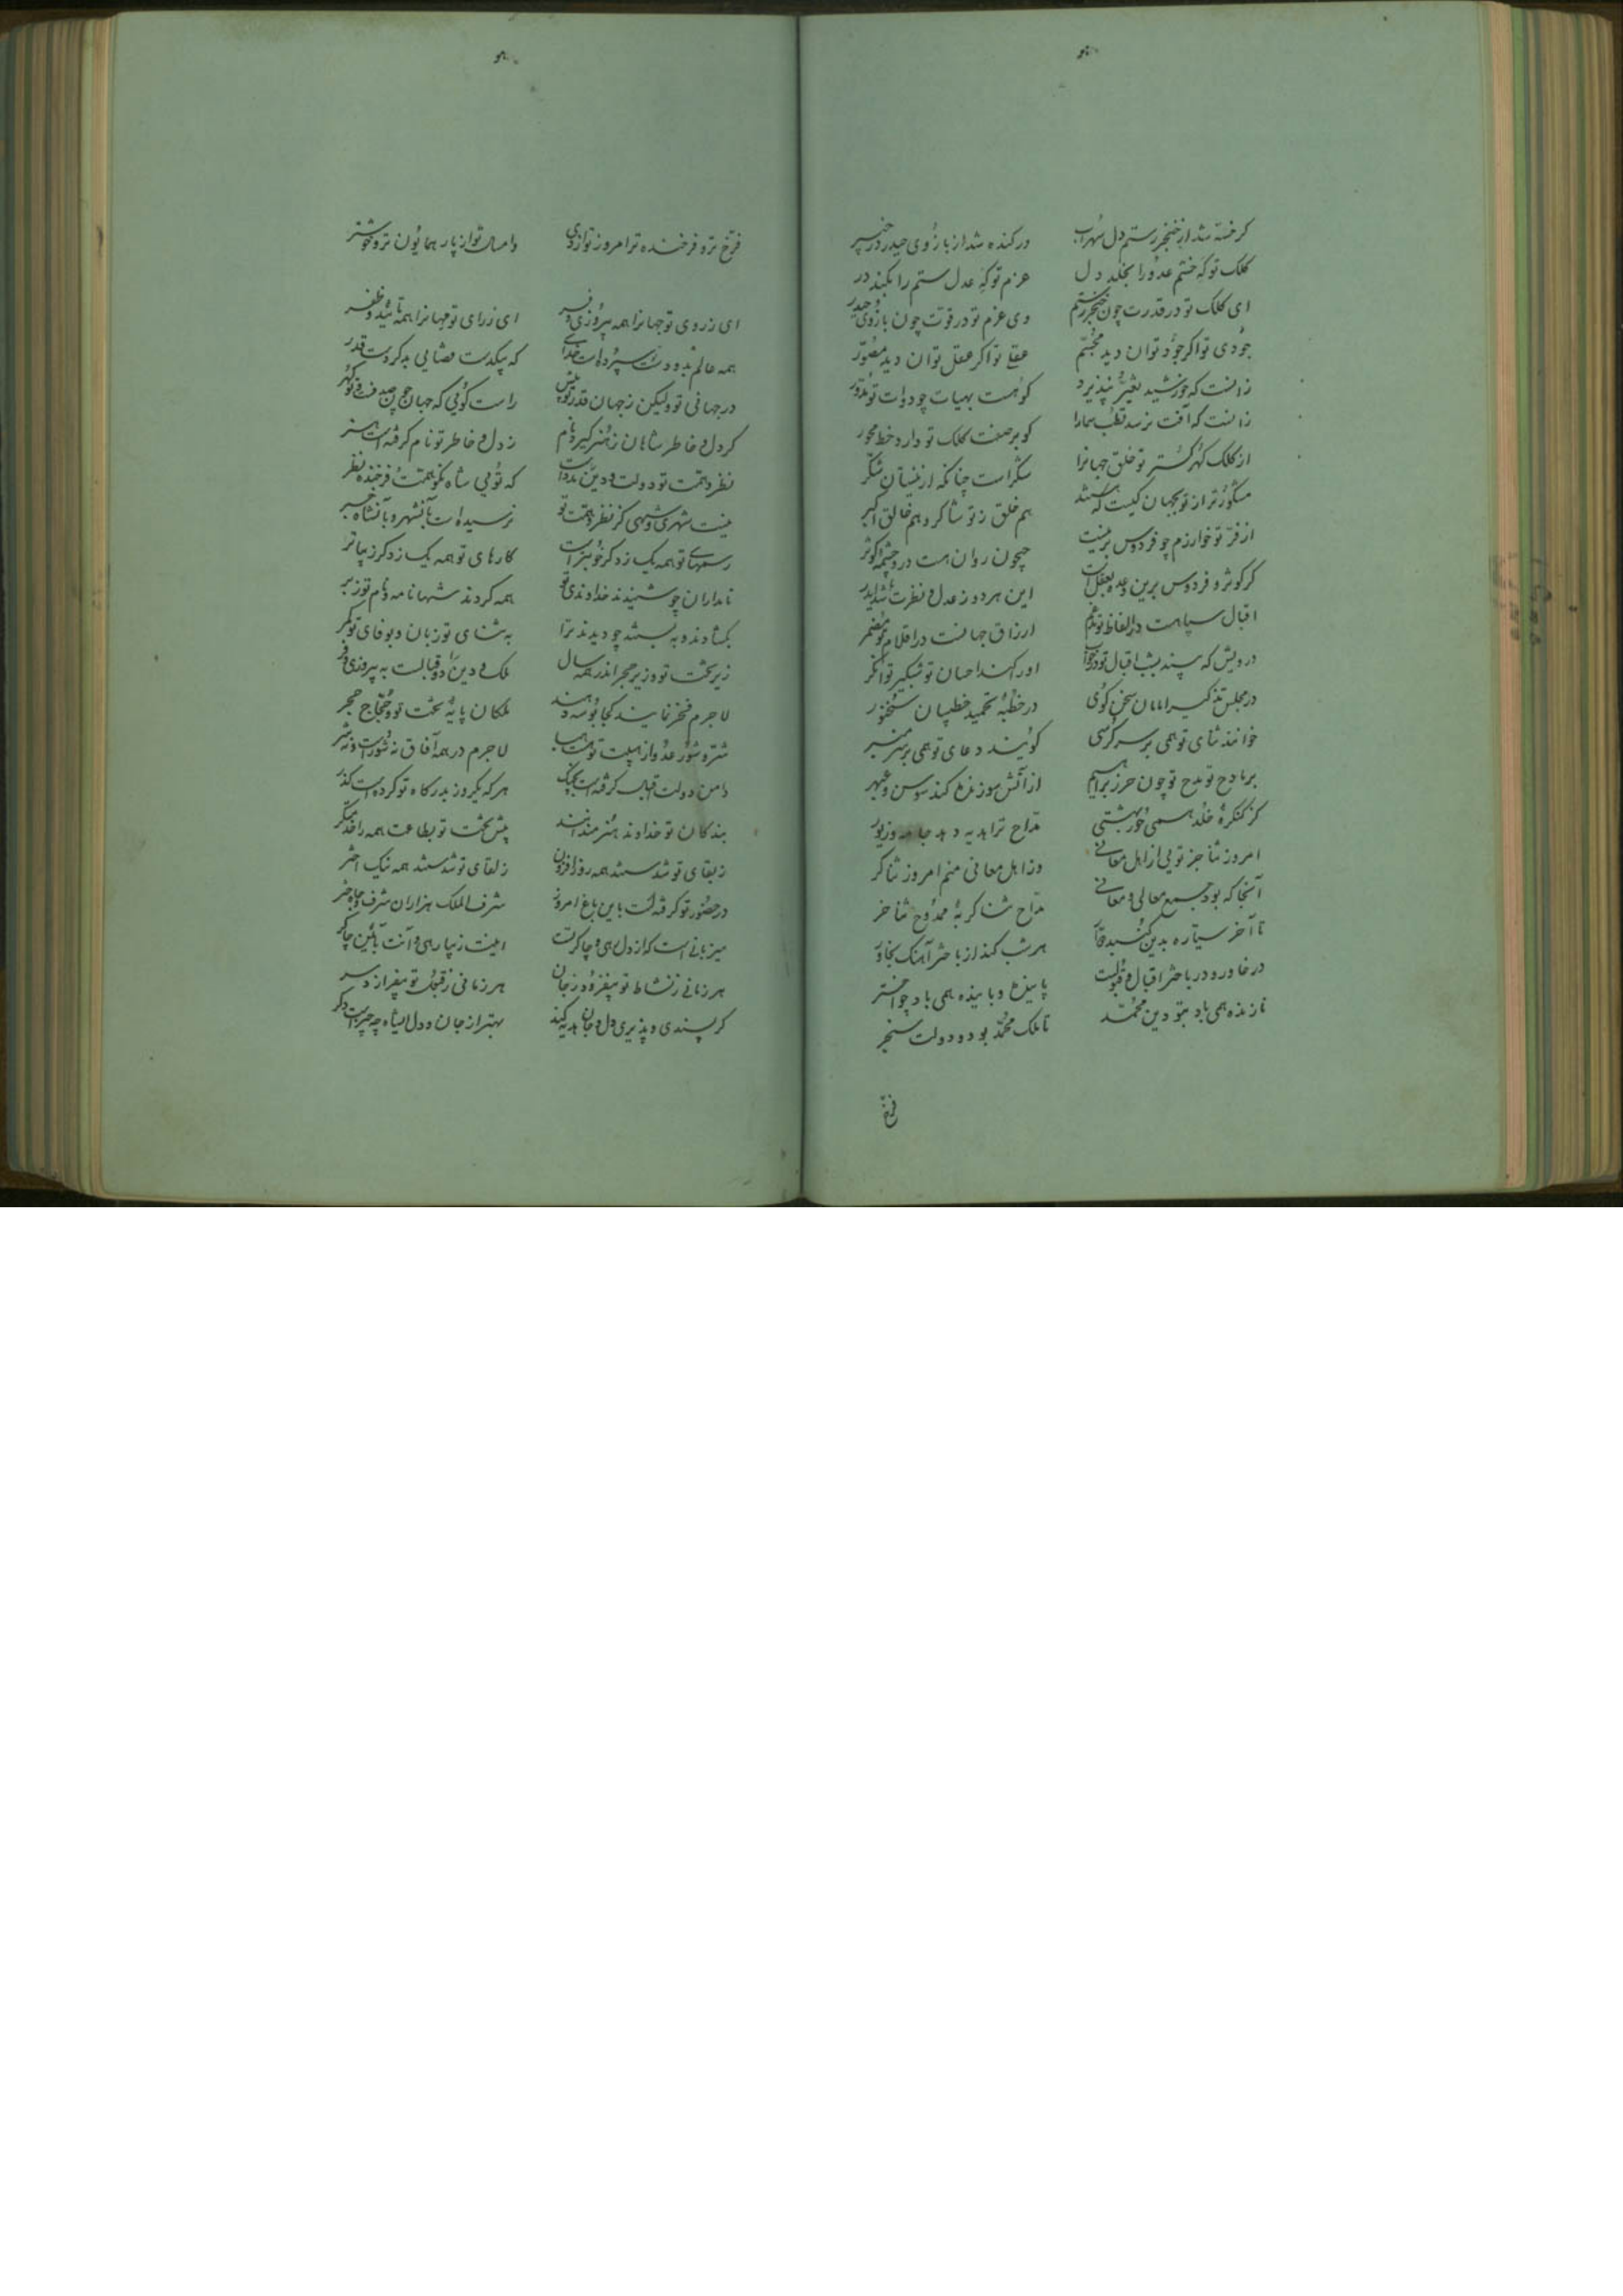 هو
گر خسته شد از خنجر رستم دل سهراب
در کنده شد از بازوی حیدر در خیبر
کلک تو که خشم عدو را بخلد دل
عزم تو که عدل ستم را بکند در
ای کلک تو در قدرت چون خنجر رستم
وی عزم تو در قوت چون بازوی حیدر
جودی تو اگر جود توان دید مجسم
عقلی تو اگر عقل توان دید مصور
زانست که خورشید تغیر نپذیرد
کو هست بهیات چو دوات تو مدور
زانست که آفت نرسد قطب سما را
کو بر صفت کلک تو دارد خط محور
از کلک گهرگستر تو خلق جهانرا
شکر است چنانکه از نیسان شکر
مشکورتر از تو بجهان کیست که هستند
هم خلق ز تو شاکر و هم خالق اکبر
از فر تو خوارزم چو فردوس برینست
جیحون روان هست درو چشمه کوثر
گر کوثر و فردوس برین وعده بعقبی است
این هر دو ز عدل و نظرت شد ایدر
اقبال سپاهست در الفاظ تو مدغم
ارزاق جهانست در اقلام تو مضمر
درویش که بیند بشب اقبال تو در خواب
او را کند احسان تو شبگیر توانگر
در مجلس تذکیر امامان سخن گوی
در خطبه تحمید خطیبان سخنور
خوانند ثنای تو همی بر سر کرسی
گویند دعای تو همی بر سر منبر
بر مادح تو مدح تو چون حرز براهیم
از آتش سوزنده کند سوسن و عبهر
کز کنگره خلد همی حور بهشتی
مداح ترا هدیه دهد جامه و زیور
امروز ثنا جز تویی از اهل معانی
وز اهل معانی منم امروز ثناگر
آنجا که بود جمع معالی و معانی
مداح ثناگر به ممدوح ثناخر
تا آخر سیاره بدین گنبد
هر شب کند از باختر آهنگ بخاور
در خاور و در باختر اقبال و قبولت
پاینده و باینده همی باد چو اختر
نازنده همی باد بتو دین محمد
تا ملک محمد بود و دولت سنجر
فرخ
هو
فرخ‌تر و فرخنده ترا امروز تو از دی
و امسال تو از پار همایون‌تر و خوشتر
ای ز روی تو جهانرا همه پیروزی و فر
ای ز رای تو مهانرا همه تأیید و ظفر
همه عالم بدو دست سپرده است خدای
که بیکدست قضایی بدگر دست قدر
در جهانی تو ولیکن ز جهان قدر تو بیش
راست گویی که جهان همچو صدف تو گهر
گر دل و خاطر شاهان ز هنر گیرد نام
ز دل و خاطر تو نام گرفته است هنر
نظر و همت تو دولت و دین را مدد است
که تویی شاه نکو همت و فرخنده نظر
نیست شهری و شهی کز نظر و همت تو
نرسیده است بآن شهر و بآن شاه خبر
رسمهای تو همه یک ز دگر خوبتر است
کارهای تو همه یک ز دگر زیباتر
نامداران چو شنیدند خداوندی تو
همه کردند شها نامه و نام تو ز بر
بگشادند و ببستند چو دیدند ترا
به ثنای تو زبان و بوفای تو کمر
زیر تخت تو و زیر حجر اندر همه سال
ملک و دین را دو قبالست به پیروزی و فر
لاجرم فخر نمایند کجا بوسه دهند
ملکان پایه تخت تو و حجاج حجر
شر و شور عدو از هیبت تو هست هبا
لاجرم در همه آفاق نه شور است و نه شر
دامن دولت اقبال گرفته است بچنگ
هر که یکروز بدرگاه تو کرده است گذر
بندگان تو خداوند هنرمندانند
پیش تخت تو بطاعت همه را خدمتگر
ز بقای تو شدستند همه روز افزون
ز لقای تو شدستند همه نیک اختر
در حضور تو گرفته است باین باغ امروز
شرف الملک هزاران شرف و جاه و خطر
میزبانی است که از دل رهی و چاکر تست
اینت زیبا رهی و آنت بآئین چاکر
هر زمانی ز نشاط تو بیفزود ز جان
هر زمانی ز قبول تو بیفرازد سر
گر پسندی و پذیری دل و جان هدیه کند
بهتر از جان و دل ای شاه چه چیز است دگر